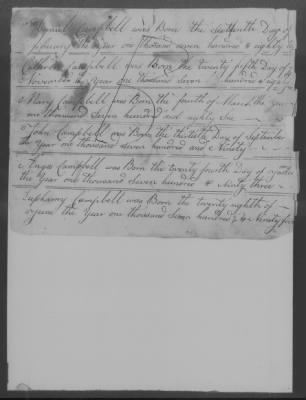 Daniel Campbell was Born the Sixteenth Day of
february the year one thousand seven hundred & eighty
Campbell was Born the twenty fifth Day of
November the Year one thousand seven hundred & eighty
Mary Campbell was Born the fourth of March the year
one thousand seven hundred and eighty
John Campbell was Born the thirtieth Day of September
the Year one thousand seven hundred and Ninety
Angus Campbell was Born the twenty fourth Day of
the Year one thousand Seven hundred & Ninty three
Eupharmy Campbell was Born the twenty eighth of
the Year one thousand Seven hundred & Ninty five